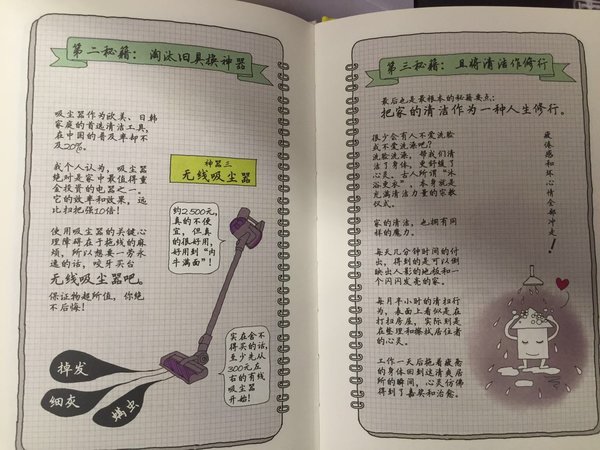 第二秘籍：淘汰旧具换神器
吸尘器作为欧美、日韩
家庭的首选清洁工具，
在中国的普及率却不
及20%。
我个人认为，吸尘器
绝对是家中最值得重
金投资的电器之一，
它的效率和效果，远
比扫把强10倍！
使用吸尘器的关键心
理障碍在于拖线的麻
烦，所以想要一劳永
逸的话，咬牙买台
无线吸尘器吧。
保证物超所值，你绝
不后悔！
神器三
无线吸尘器
约2,500元，
真的不便
宜，但真
的很好用，
好用到“内
牛满面”！
实在舍不
得买的话，
至少先从
300元左
右的有线
吸尘器
开始！
掉发
细灰
螨虫
第三秘籍：且将清洁作修行
最后也是最根本的秘籍要点：
把家的清洁作为一种人生修行。
很少会有人不爱洗脸
或不爱洗澡吧？
洗脸洗澡，帮我们清
洁了身体，更舒缓了
心灵。古人所谓“沐
浴更衣”，本身就是
充满清洁力量的宗教
仪式。
家的清洁，也拥有同
样的魔力。
每天几分钟时间的付
出，得到的是可以倒
映出人影的地板和一
个闪闪发亮的家。
每月半小时的清扫行
为，表面上看似是在
打扫房屋，实际到是
在整理和擦拭居住者
的心灵。
工作一天后拖着疲惫
的身体回到这清爽居
所的瞬间，心灵仿佛
得到了嘉奖和治愈。
疲惫感和坏心情全部冲走！